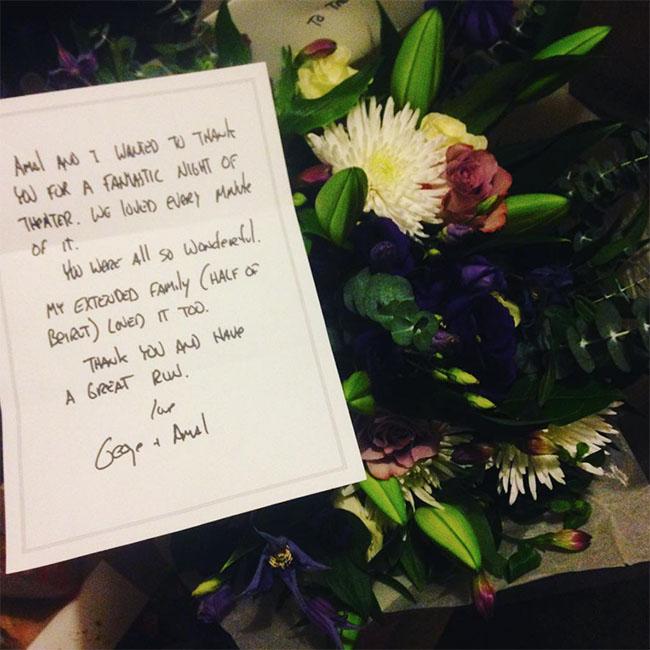 To Th
Amal AND I WANTED TO THANK
YOU FOR A FANTASTIC NIGHT OF
THEATER. WE LOVED EVERY MINUTE
OF IT.
YOU WERE All SO WONDERFUL.
MY EXTENDED FAMILY (HALF OF
BEIRUT) LOVED IT TOO.
THANK YOU AND HAVE
A GREAT RUN.
love
George + Amal